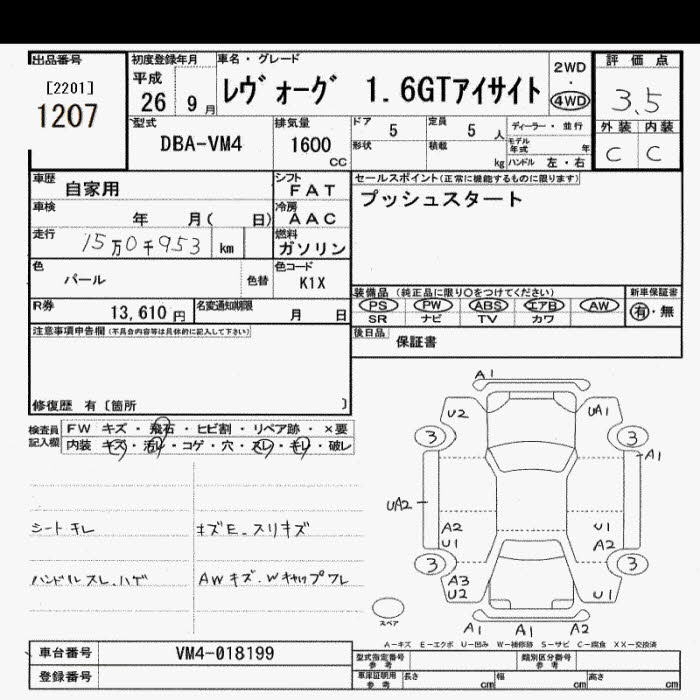 出品番号
[2201]
1207
初度登録年月
平成
26 9月
車名・グレード
レヴォーグ 1.6GTアイサイト
2WD
4WD
評価点
3.5
外装 内装
C C
型式
DBA-VM4
排気量
1600
CC
ドア
5
定員
5 人
形状
積載
kg
ディーラー・並行
モデル年式 年
ハンドル 左・右
車歴
自家用
シフト
FAT
車検
年 月( 日)
冷房
AAC
走行
15万0千953 km
燃料
ガソリン
色
パール
色替
色コード
K1X
R券
13,610円
名変通知期限
月 日
セールスポイント(正常に機能するものに限ります)
プッシュスタート
装備品(純正品に限り○をつけてください)
新車保証書
PS PW ABS エアB AW
有・無
SR ナビ TV カワ
後日品
保証書
注意事項申告欄(不具合内容等は具体的に記入して下さい)
修復歴 有〔箇所 〕
検査員記入欄
FW キズ・飛石・ヒビ割・リペア跡・×要
内装 キズ・汚レ・コゲ・穴・スレ・キレ・破レ
シートキレ
キズE.スリキズ
ハンドルスレ.ハゲ
AWキズ.Wキャップワレ
A1
U2 UA1
3 3
A1
UA2
A2 U1
U1 A2
3 3
A3
U2 U1
スペア
A1 A1 A2
A-キズ E-エクボ U-凹み W-補修跡 S-サビ C-腐食 XX-交換済
車台番号
VM4-018199
登録番号
型式指定番号
参考
類別区分番号
参考
車庫証明用
参考
長さ cm
幅 cm
高さ cm